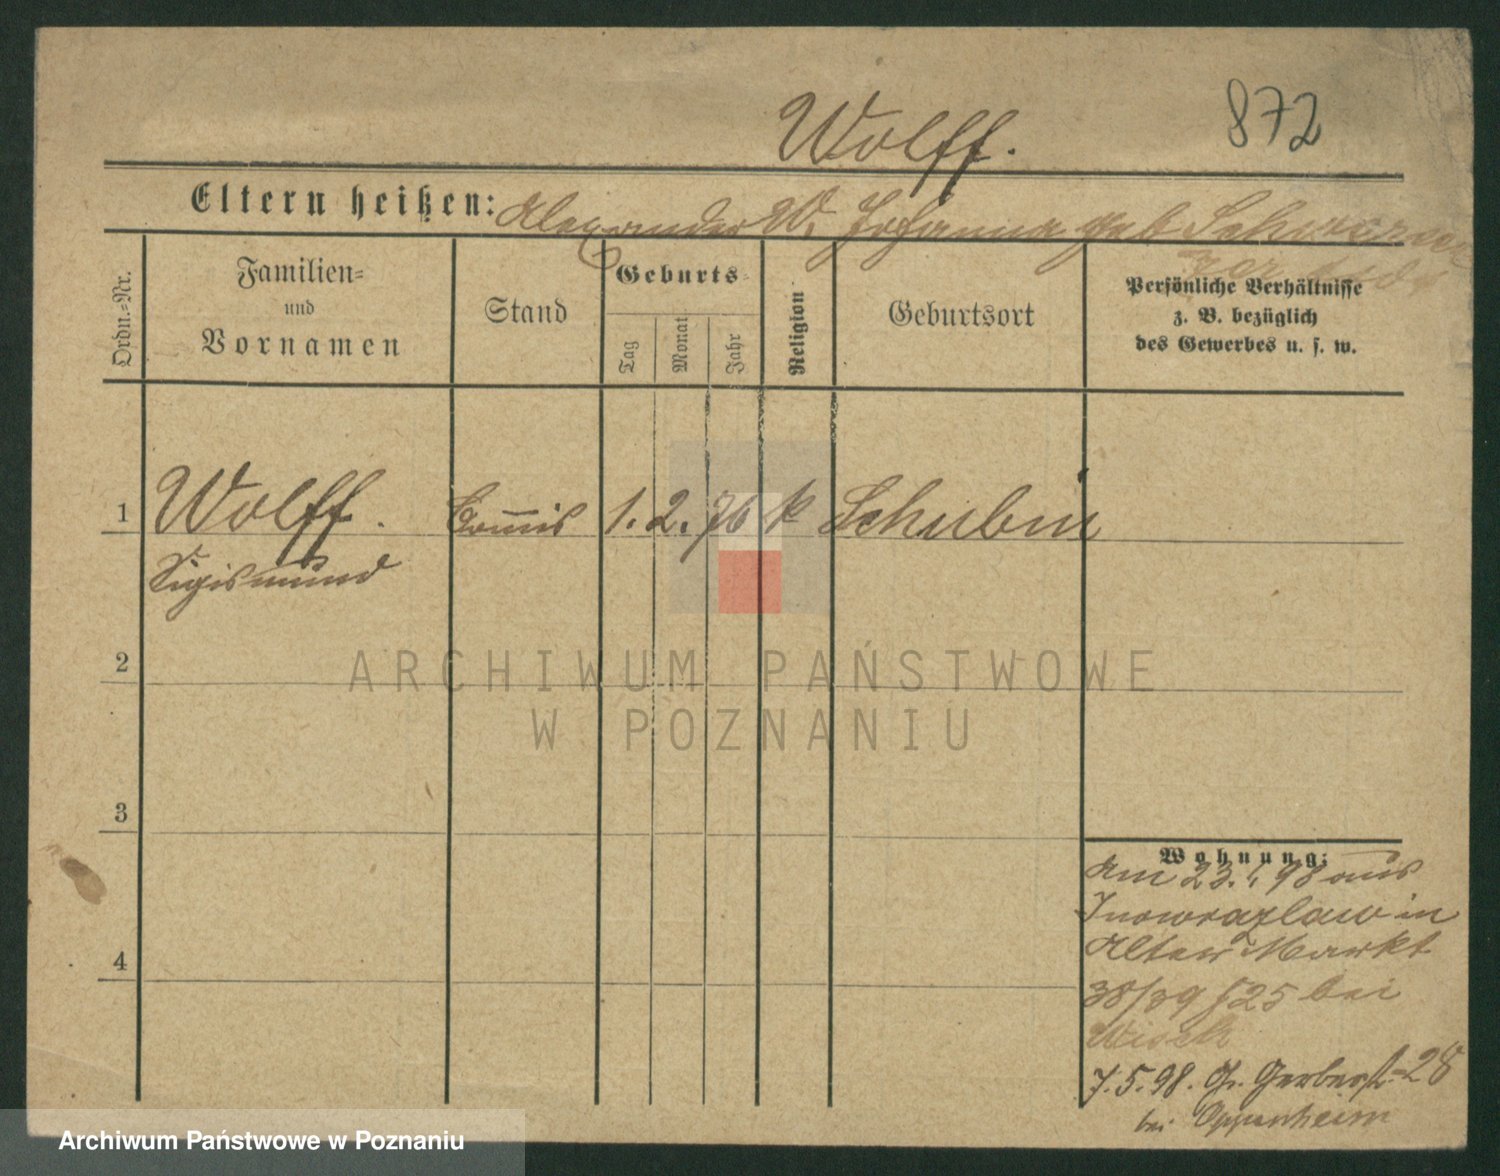 872
Wolff.
Eltern heißen: Alexander W. Johanna geb
Ordn.=Nr.
Familien=
und
Vornamen
Stand
Geburts=
Tag
Monat
Jahr
Religion
Geburtsort
Persönliche Verhältnisse
z. B. bezüglich
des Gewerbes u. s. w.
1
Wolff.
Sigismund
Commis
1. 2. 76
k
Schubin
2
3
4
Wohnung:
Am 23. 98 aus
Inowrazlaw in
Alter Markt
38/39 bei
7. 5. 98. Gr. Gerberst. 28
bei Oppenheim
ARCHIWUM PAŃSTWOWE
W POZNANIU
Archiwum Państwowe w Poznaniu